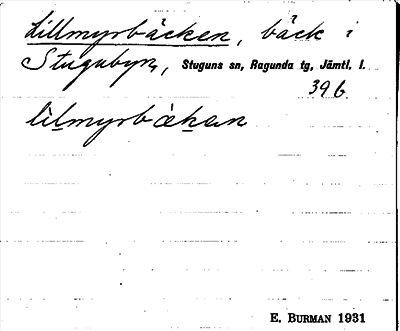 Lillmyrbäcken, bäck i
Stugubyn, Stuguns sn, Ragunda tg, Jämtl. l.
39 6.
lìlmyrbäkan
E. BURMAN 1931